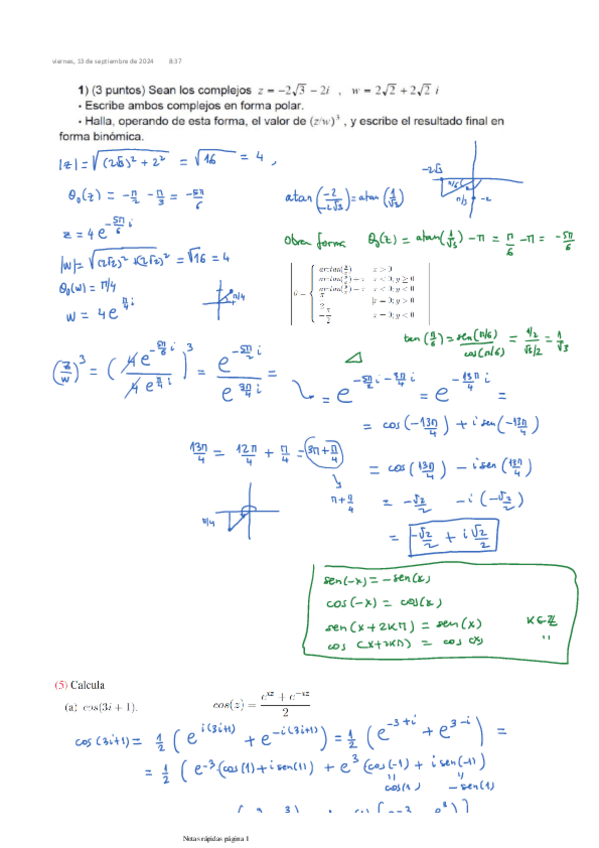 viernes, 13 de septiembre de 2024 8:37
1) (3 puntos) Sean los complejos z = −2√3 − 2i , w = 2√2 + 2√2 i
• Escribe ambos complejos en forma polar.
• Halla, operando de esta forma, el valor de (z/w)³ , y escribe el resultado final en
forma binómica.
|z| = √((2√3)² + 2²) = √16 = 4 ,
θ₀(z) = −π/2 − π/3 = −5π/6
atan(−2/−2√3) = atan(1/√3)
−2√3
π/6
π/3
−2
z = 4 e^(−5π/6 i)
Otra forma θ₀(z) = atan(1/√3) − π = π/6 − π = −5π/6
|w| = √((2√2)² + (2√2)²) = √16 = 4
θ₀(w) = π/4
π/4
w = 4 e^(π/4 i)
tan(π/6) = sen(π/6)/cos(π/6) = (1/2)/(√3/2) = 1/√3
(z/w)³ = (4 e^(−5π/6 i) / 4 e^(π/4 i))³ = e^(−5π/2 i) / e^(3π/4 i) = e^(−5π/2 i − 3π/4 i) = e^(−13π/4 i) =
= cos(−13π/4) + i sen(−13π/4)
13π/4 = 12π/4 + π/4 = 3π + π/4
= cos(13π/4) − i sen(13π/4)
π + π/4
= −√2/2 − i (−√2/2)
π/4
= −√2/2 + i √2/2
sen(−x) = −sen(x)
cos(−x) = cos(x)
sen(x + 2kπ) = sen(x) k∈ℤ
cos(x + 2kπ) = cos(x) "
(5) Calcula
(a) cos(3i + 1). cos(z) = (e^{iz} + e^{−iz})/2
cos(3i+1) = 1/2 (e^(i(3i+1)) + e^(−i(3i+1))) = 1/2 (e^(−3+i) + e^(3−i)) =
= 1/2 (e^(−3) (cos(1) + i sen(1)) + e³ (cos(−1) + i sen(−1))
cos(1) −sen(1)
Notas rápidas página 1